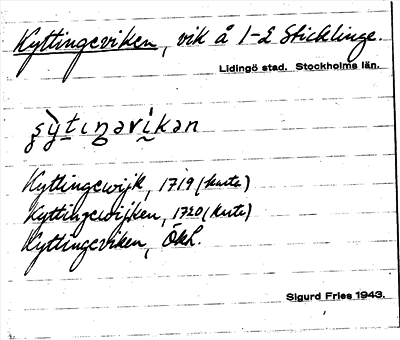 Kyttingeviken, vik å 1-2 Sticklinge.
Lidingö stad. Stockholms län.
Kyttingewijk, 1719 (karta)
Kyttingewijken, 1720 (karta)
Kyttingeviken, Ökl.
Sigurd Fries 1943.